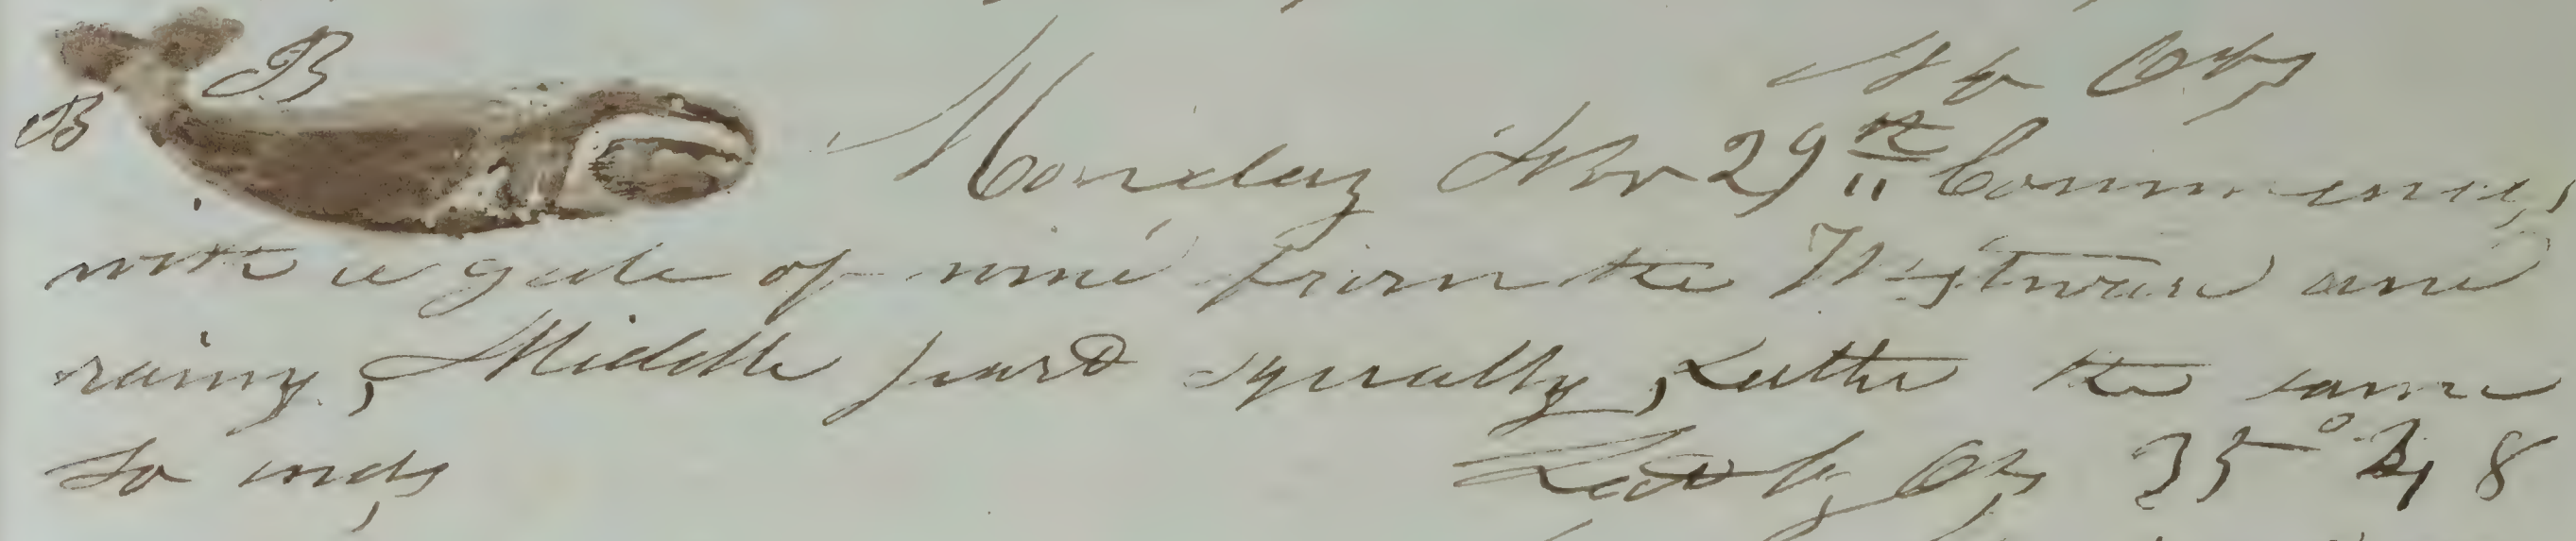 B
B
Monday Nov 29th Commences
with a gale of wind from the Westward and
rainy, Middle part squally, Latter the same
So ends Latt by Obs 35°